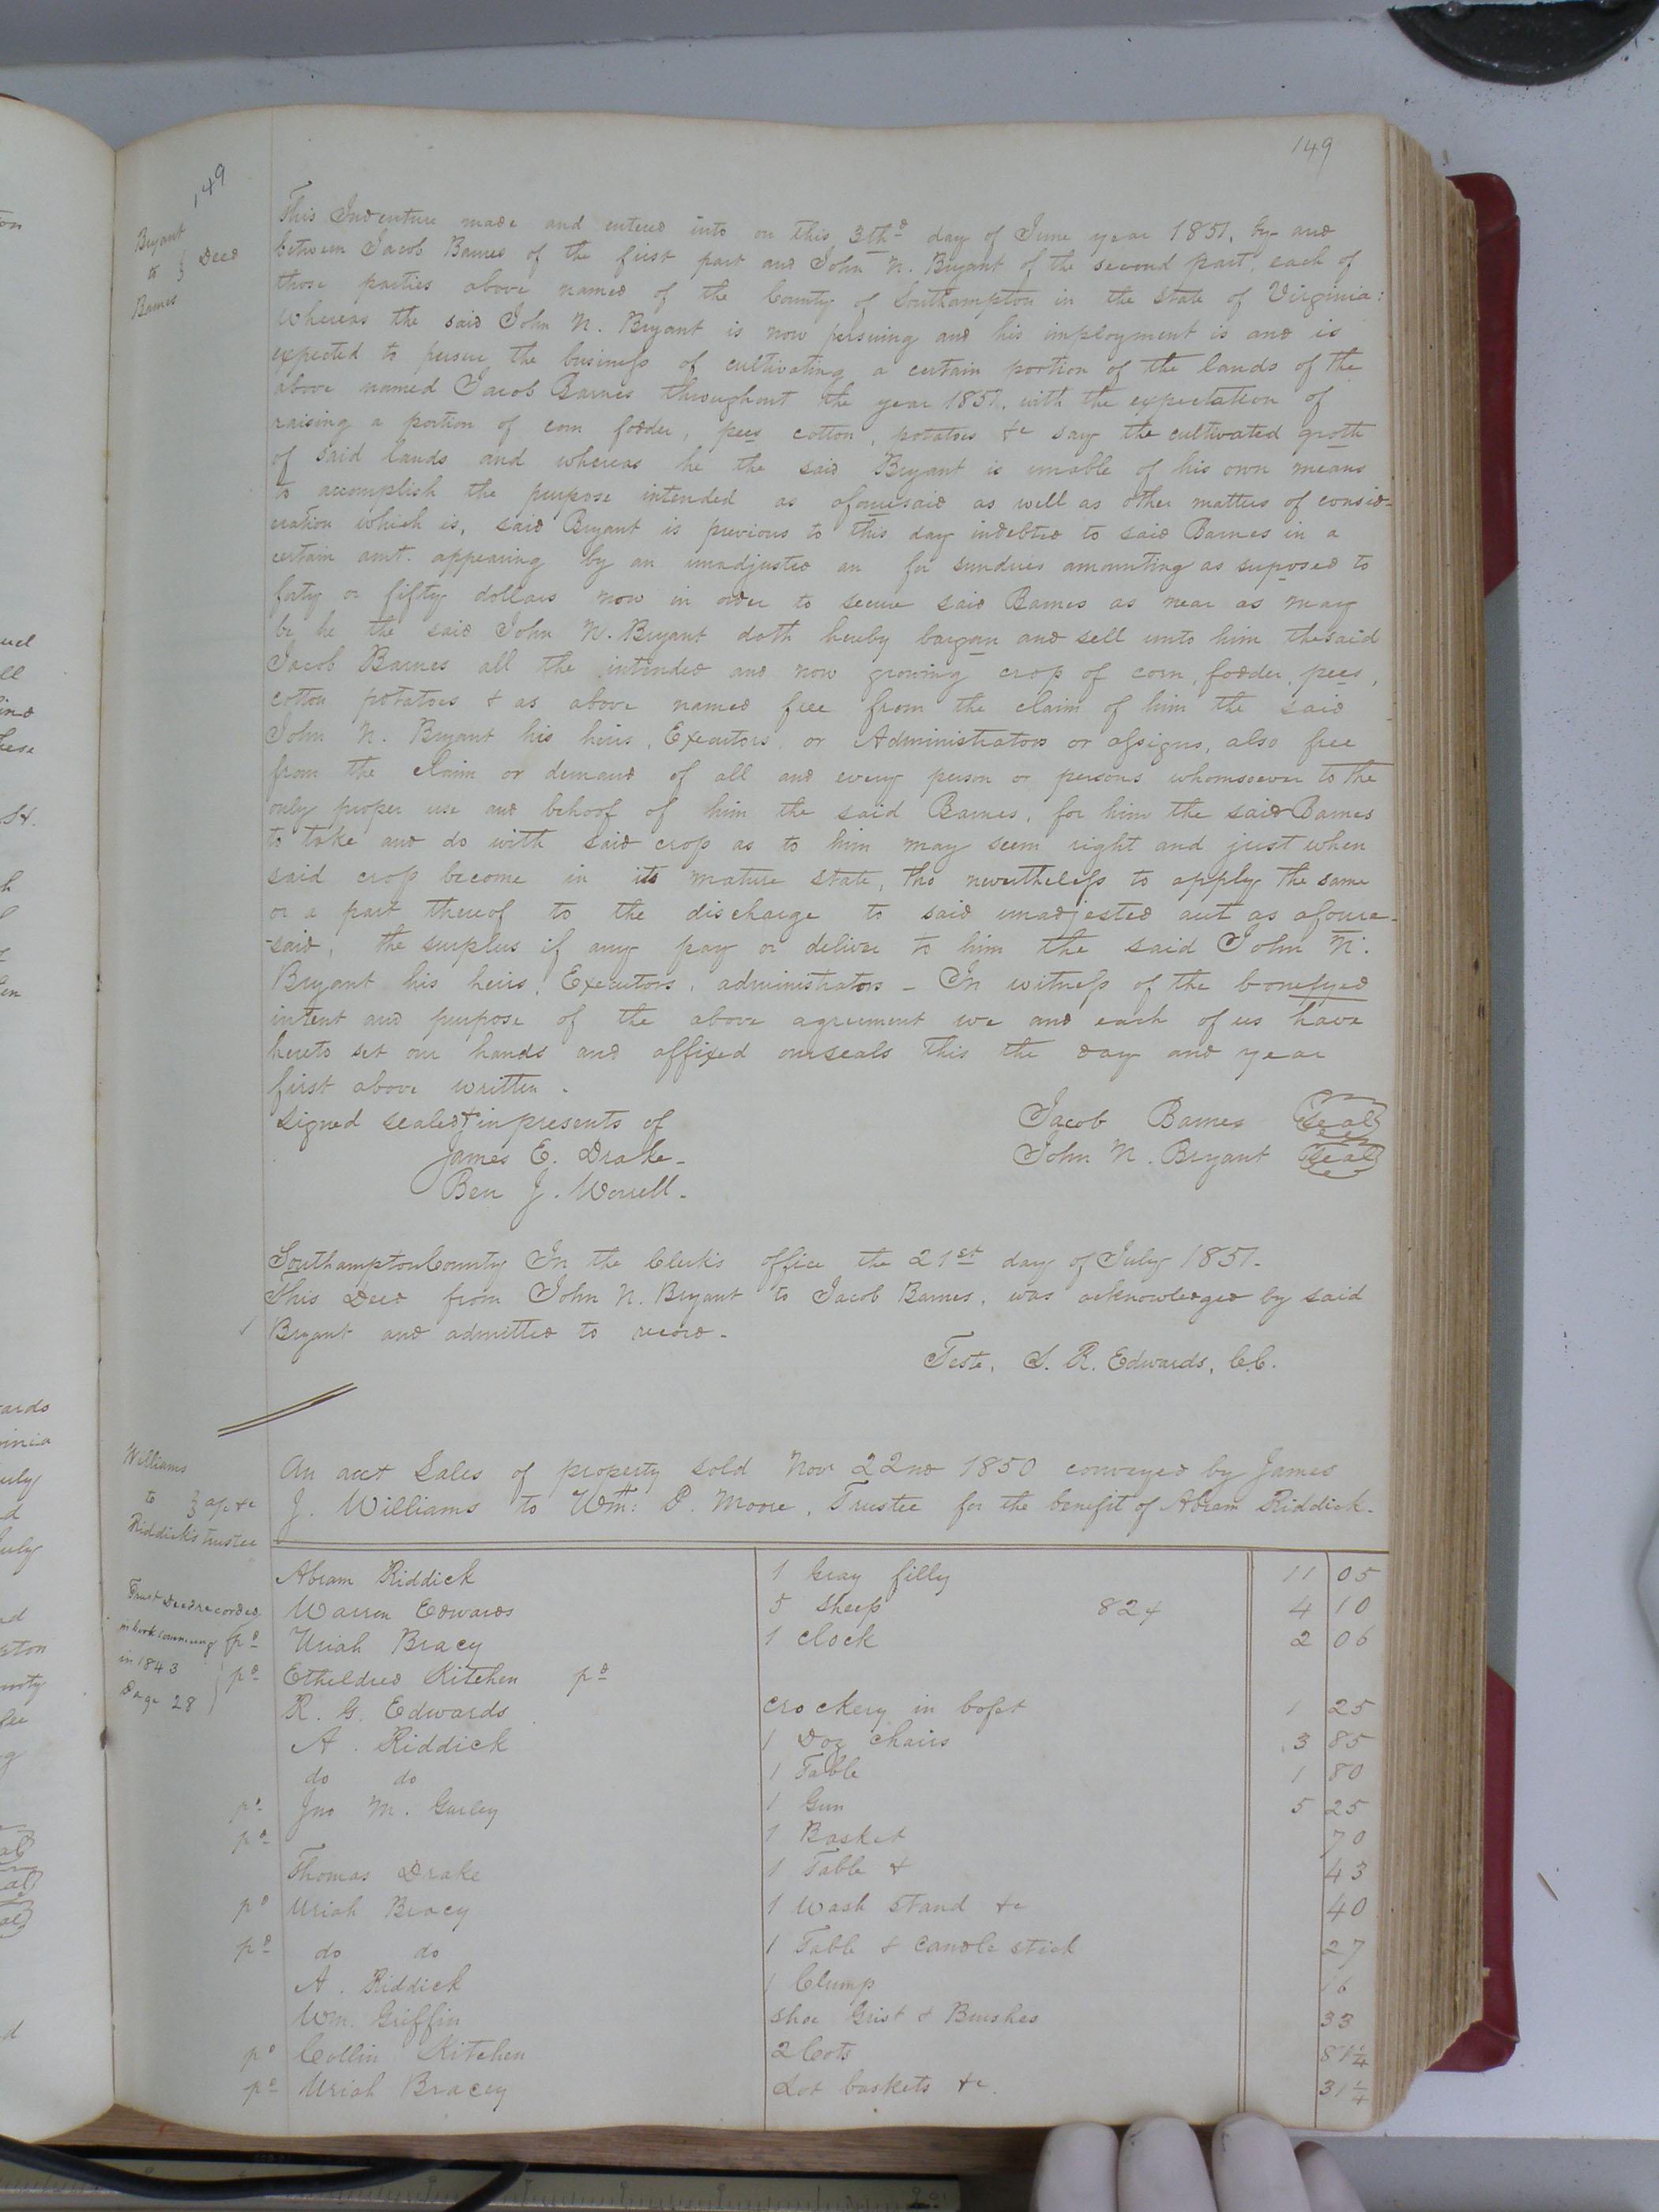 149
149
Bryant
to } Deed
Barnes
This Indenture made and entered into on this 3thd day of June year 1851, by and
between Jacob Barnes of the first part and John N. Bryant of the second part, each of
those parties above named of the County of Southampton in the State of Virginia:
Whereas the said John N. Bryant is now persuing and his imployment is and is
expected to persue the business of cultivating a certain portion of the lands of the
above named Jacob Barnes throughout the year 1851, with the expectation of
raising a portion of corn fodder, pees cotton, potatoes &c say the cultivated groth
of said lands and whereas he the said Bryant is unable of his own means
to accomplish the purpose intended as afouresaid as well as other matters of consid-
eration which is, said Bryant is previous to this day indebted to said Barnes in a
certain amt. appearing by an unadjusted an for sundries amounting as suposed to
forty or fifty dollars now in order to secure said Barnes as near as may
be he the said John N. Bryant doth hereby bargan and sell unto him the said
Jacob Barnes all the intended and now growing crop of corn, fodder, pees,
cotton potatoes & as above named free from the claim of him the said
John N. Bryant his heirs, Executors, or Administrators or assigns, also free
from the claim or demand of all and every person or persons whomsoever to the
only proper use and behoof of him the said Barnes, for him the said Barnes
to take and do with said crop as to him may seem right and just when
said crop become in its mature state, tho nevertheless to apply the same
or a part thereof to the discharge to said unadjested act as afoure-
-said, the surplus if any pay or deliver to him the said John N.
Bryant his heirs, Executors, administrators - In witness of the bonefyed
intent and purpose of the above agreement we and each of us have
hereto set our hands and affixed our seals this the day and year
first above written.
signed sealed & in presents of
Jacob Barnes Seal
James E. Drake -
John N. Bryant Seal
Ben J. Worrell -
Southampton County In the Clerk's office the 21st day of July 1851.
This Deed from John N. Bryant to Jacob Barnes, was acknowledged by said
Bryant and admitted to record -
Teste, L. R. Edwards, C.C.
Williams
to } a/c &c
Riddick's trustee
An acct Sales of property sold Nov 22nd 1850 conveyed by James
J. Williams to Wm: P. Moore, Trustee for the benefit of Abram Riddick.
Trust Deed recorded
in book commencing
in 1843
Page 28
Abram Riddick 1 Gray filly 11 05
Warren Edwards 5 Sheep 82¢ 4 10
pd Uriah Bracy 1 clock 2 06
pd Etheldred Kitchen pd
R. G. Edwards crockery in bofet 1 25
A. Riddick 1 Doz chairs 3 85
do do 1 Table 1 80
pd Jno M. Gurley 1 Gun 5 25
pd 1 Basket 70
Thomas Drake 1 Table & 43
pd Uriah Bracy 1 Wash stand &c 40
pd do do 1 Table & candle stick 27
A. Riddick 1 Clump 16
Wm. Griffin shoe Grist & Brushes 33
pd Collin Kitchen 2 Cots 81¼
pd Uriah Bracey Lot baskets &c. 31¼